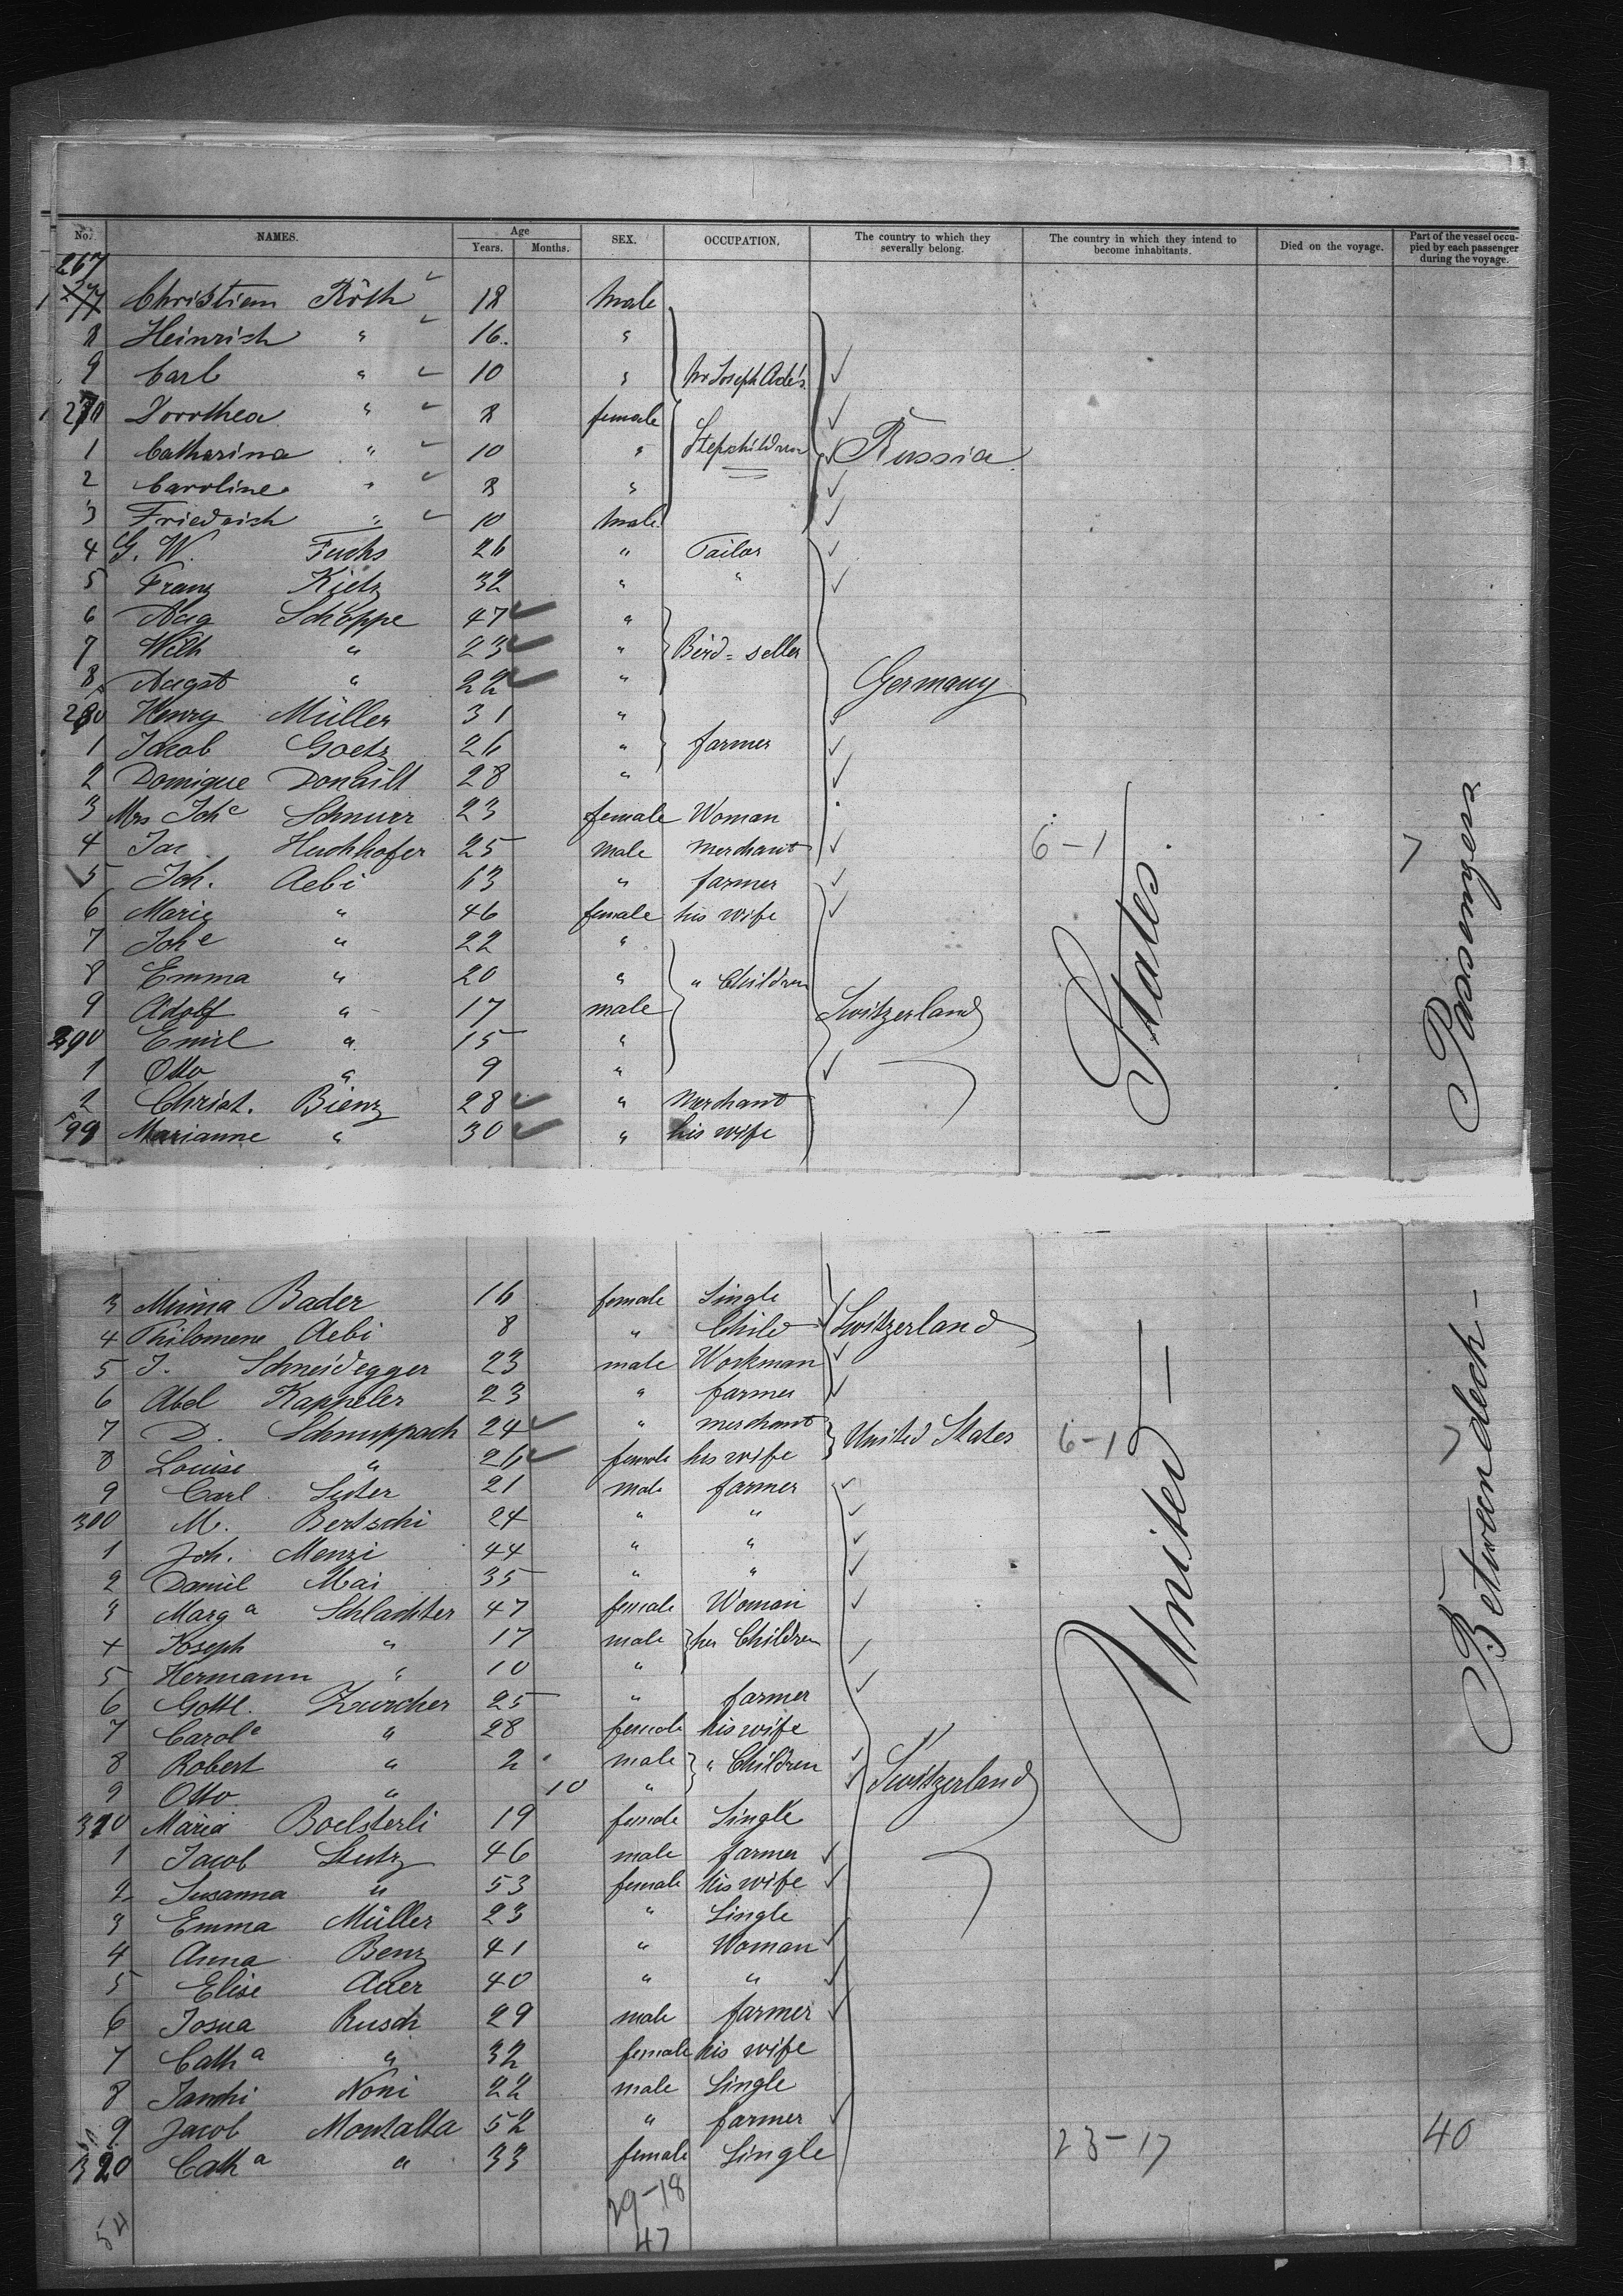 No. NAMES. Age Years. Months. SEX. OCCUPATION. The country to which they severally belong. The country in which they intend to become inhabitants. Died on the voyage. Part of the vessel occupied by each passenger during the voyage.
267
Christian Röth 18 Male
8 Heinrich " 16 "
9 Carl " 10 " Mr Joseph Ade's
270 Dorothea " 8 female
1 Catharina " 10 " Stepchildren Russia
2 Caroline " 8 "
3 Friedrich " 10 Male
4 G. W. Fuchs 26 " Tailor
5 Franz Kietz 32 " "
6 Aug Schöppe 47 "
7 Wilh " 23 " Bird=seller
8 Augst " 22 " Germany
280 Henry Müller 31 "
1 Jacob Goetz 26 " farmer
2 Domique Donhilt 28 "
3 Mrs Johe Schnurr 23 female Woman
4 Jac Huchhofer 25 male merchant 6-1
5 Joh. Aebi 63 " farmer
6 Marie " 46 female his wife
7 Johe " 22 "
8 Emma " 20 " " Children
9 Adolf " 17 male Switzerland
290 Emil " 15 "
1 Otto " 9 "
2 Christ. Bienz 28 " Merchant
Marianne " 30 " his wife
States.
Passengers
3 Minna Bader 16 female Single
4 Philomene Aebi 8 " Child Switzerland
5 J. Schneidegger 23 male Workman
6 Abel Kappeler 23 " farmer
7 D. Schnuppach 24 " merchant United States 6-1
8 Louise " 26 female his wife
9 Carl Suter 21 male farmer
300 M. Bertschi 24 " "
1 Joh. Menzi 44 " "
2 Daniel Mai 35 " "
3 Marga Schlachter 47 female Woman
4 Joseph " 17 male her Children
5 Hermann " 10 "
6 Gottl. Zurcher 25 " farmer
7 Carole " 28 female his wife
8 Robert " 2 male " Children
9 Otto " 10 " Switzerland
310 Maria Boelsterli 19 female Single
1 Jacob Stutz 46 male farmer
2 Susanna " 53 female his wife
3 Emma Müller 23 " Single
4 Anna Benz 41 " Woman
5 Elise Auer 40 " "
6 Josua Rusch 29 male farmer
7 Catha " 32 female his wife
8 Janchi Noni 22 male Single
9 Jacob Montalta 52 " farmer 23-17 40
320 Catha " 33 female Single
United
Between deck
29-18
54 47